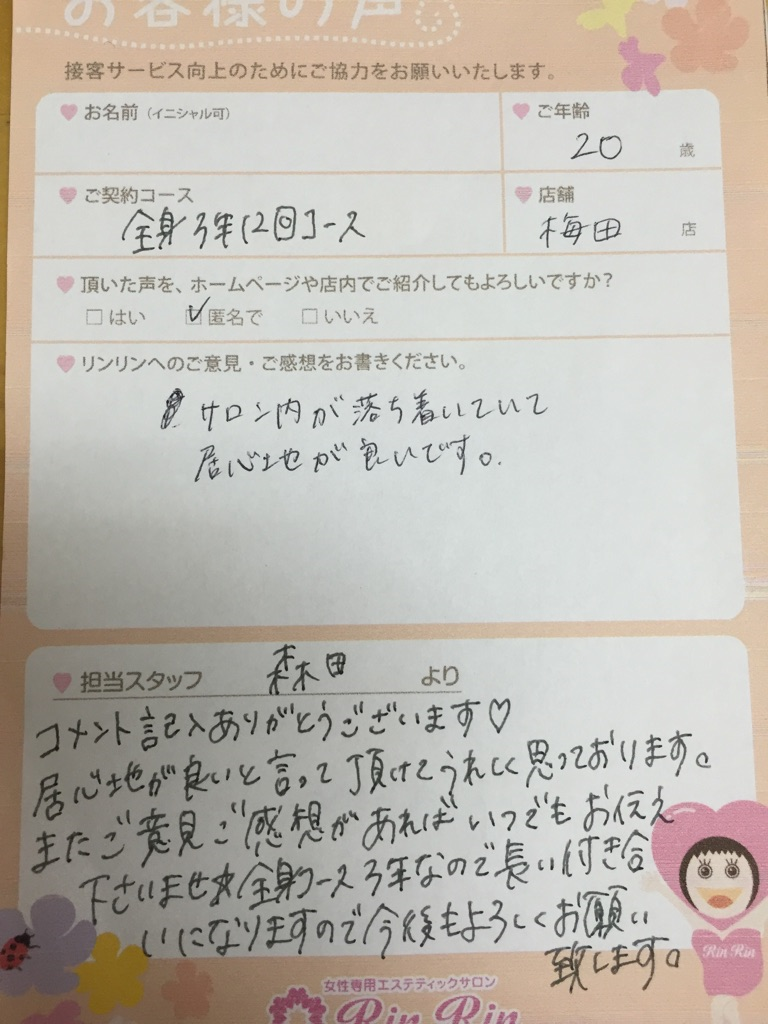 お客様の声
接客サービス向上のためにご協力をお願いいたします。
お名前（イニシャル可）
ご年齢
20 歳
ご契約コース
全身3年12回コース
店舗
梅田 店
頂いた声を、ホームページや店内でご紹介してもよろしいですか？
はい 匿名で いいえ
リンリンへのご意見・ご感想をお書きください。
サロン内が落ち着いていて
居心地が良いです。
担当スタッフ 森田 より
コメント記入ありがとうございます♡
居心地が良いと言って頂けてうれしく思っております。
またご意見ご感想があればいつでもお伝え
下さいませ☆全身コース3年なので長い付き合
いになりますので今後もよろしくお願い
致します。
Rin Rin
女性専用エステティックサロン
Rin Rin